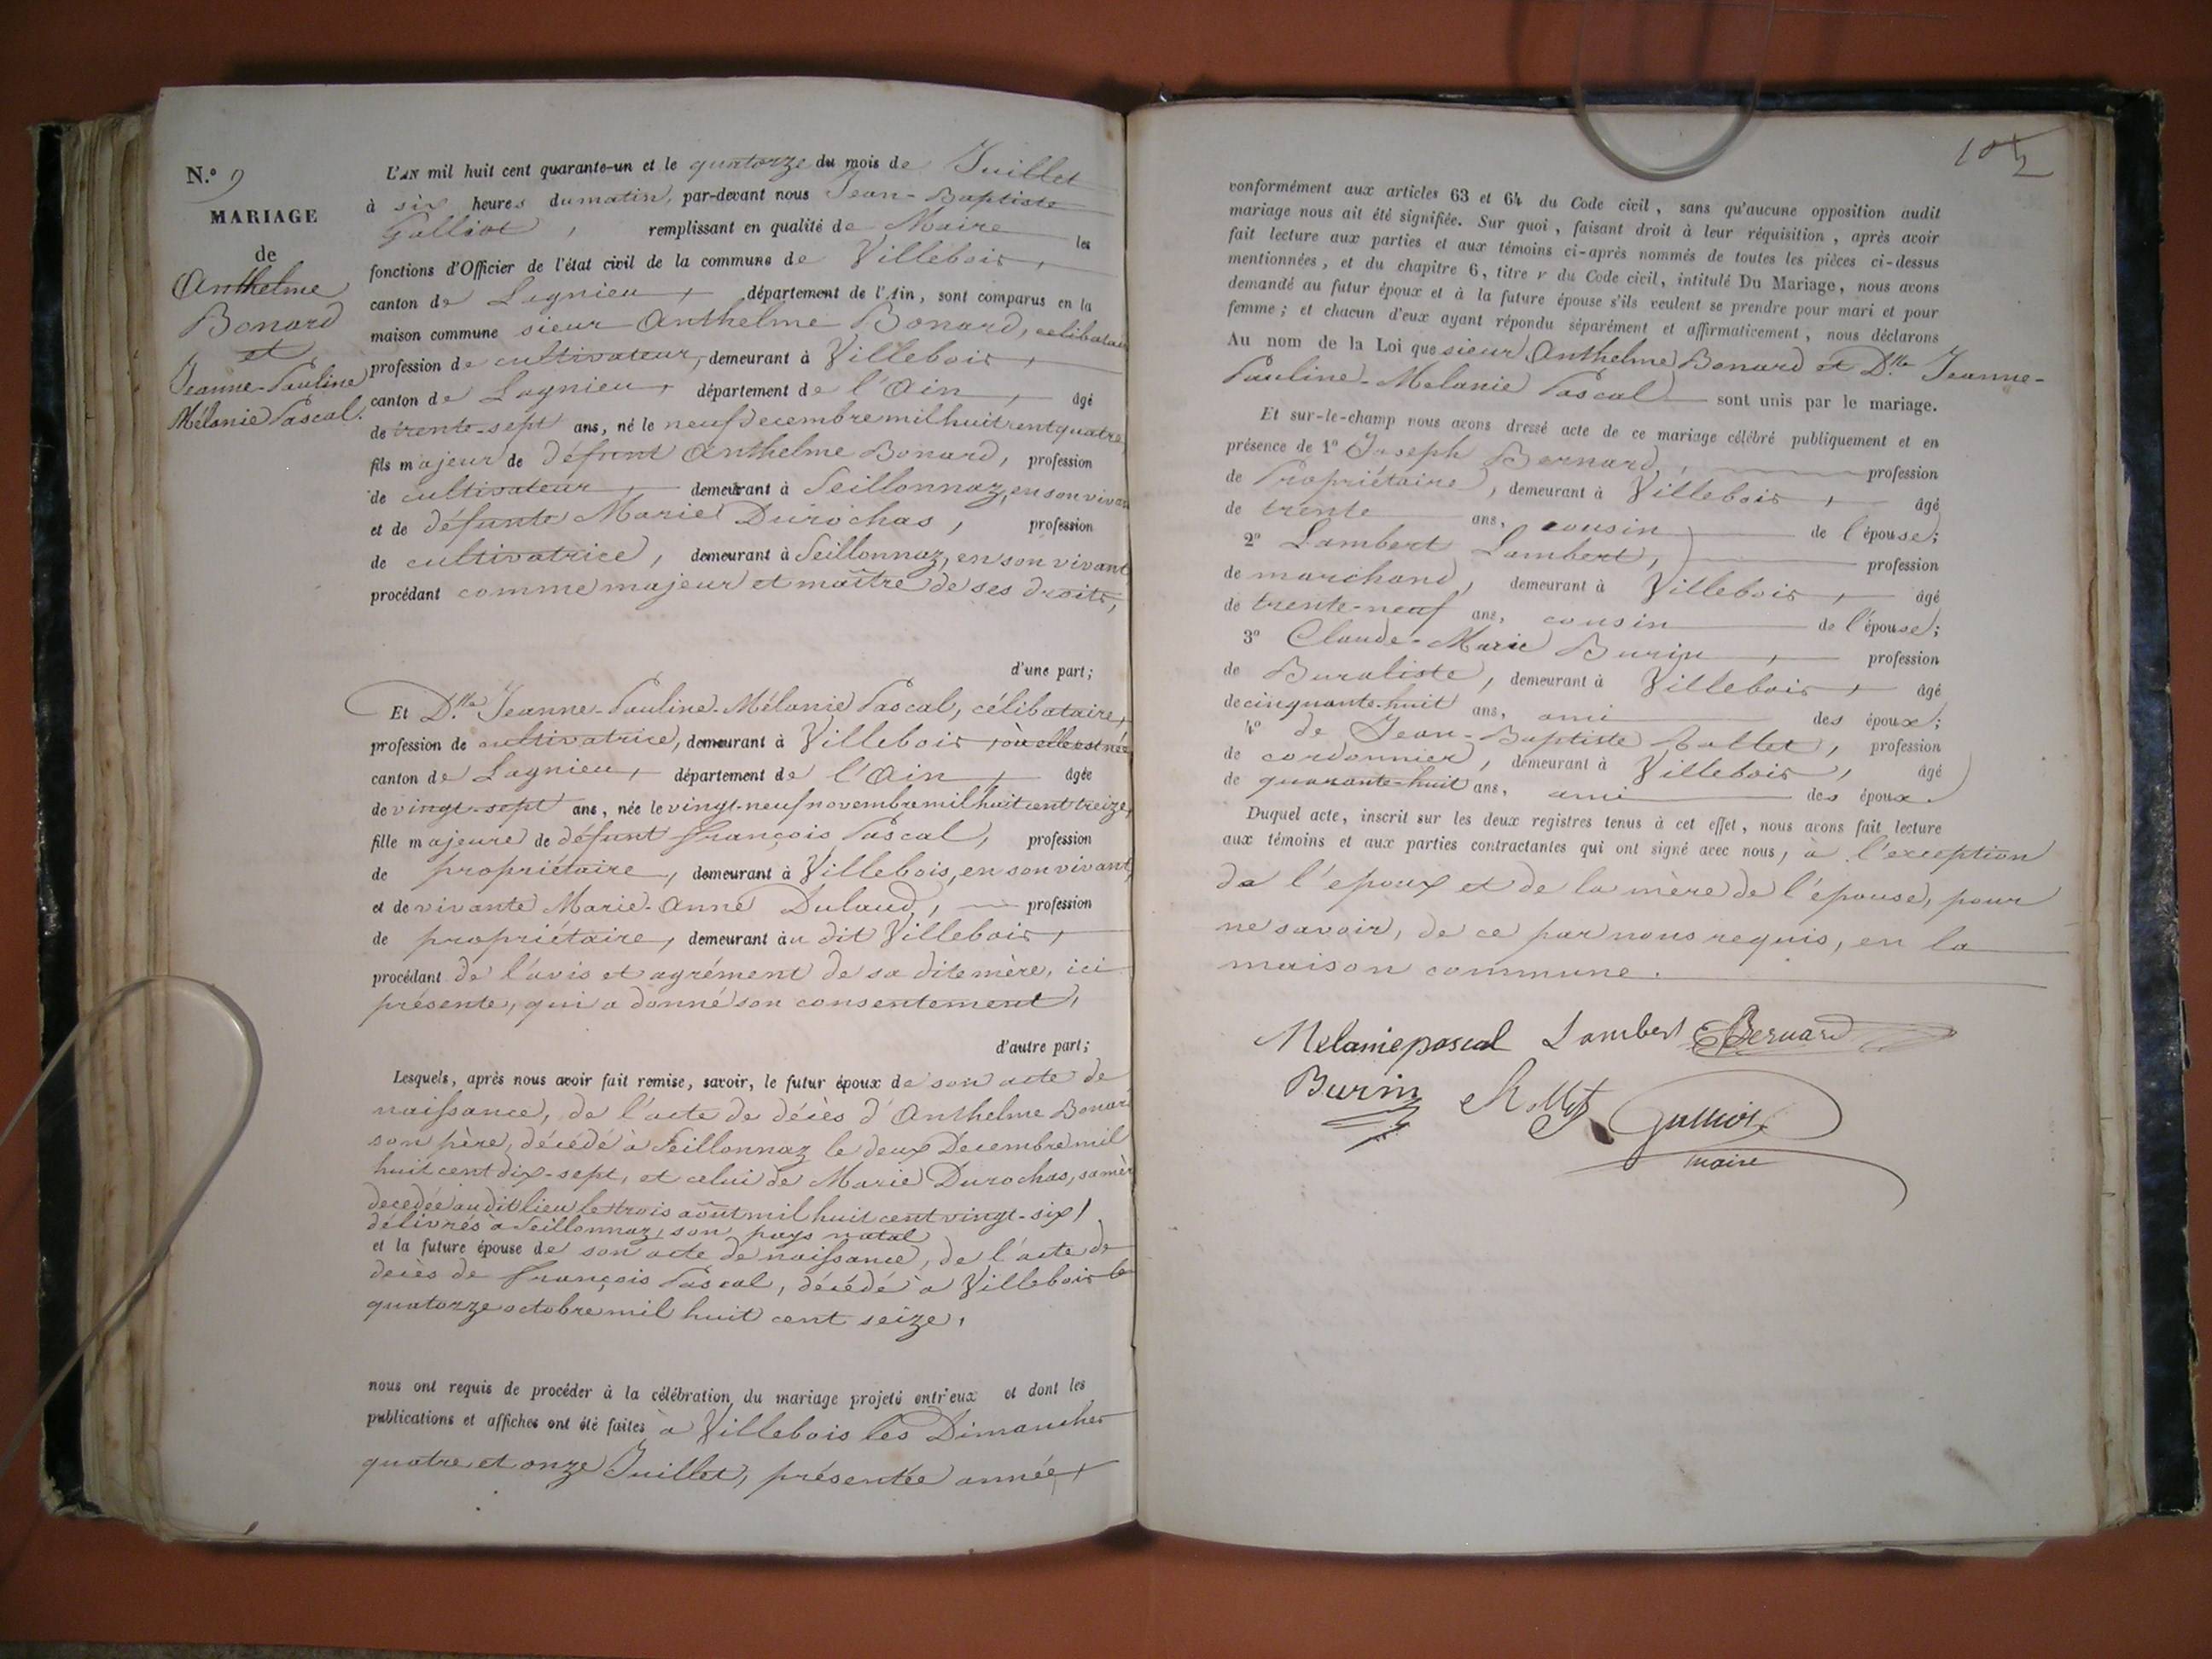 N.º 9
MARIAGE
de
Anthelme
Bonard
et
Jeanne-Pauline
Mélanie Pascal.
L'AN mil huit cent quarante-un et le quatorze du mois de Juillet
à six heures du matin, par-devant nous Jean-Baptiste
Galliot, remplissant en qualité de Maire les
fonctions d'Officier de l'état civil de la commune de Villebois,
canton de Lagnieu, département de l'Ain, sont comparus en la
maison commune sieur Anthelme Bonard, celibatair
profession de cultivateur, demeurant à Villebois,
canton de Lagnieu, département de l'Ain, âgé
de trente-sept ans, né le neuf decembre mil huit cent quatre,
fils majeur de défunt Anthelme Bonard, profession
de cultivateur, demeurant à Seillonnaz, en son vivan
et de défunte Marie Durochas, profession
de cultivatrice, demeurant à Seillonnaz, en son vivant
procédant comme majeur et maître de ses droits,
d'une part;
Et D.lle Jeanne-Pauline-Mélanie Pascal, célibataire,
profession de cultivatrice, demeurant à Villebois, où elle est née
canton de Lagnieu, département de l'Ain, âgée
de vingt-sept ans, née le vingt-neuf novembre mil huit cent treize,
fille majeure de défunt François Pascal, profession
de propriétaire, demeurant à Villebois, en son vivant,
et de vivante Marie-Anne Dulaud, profession
de propriétaire, demeurant au dit Villebois,
procédant de l'avis et agrément de sa dite mère, ici
présente, qui a donné son consentement,
d'autre part;
Lesquels, après nous avoir fait remise, savoir, le futur époux de son acte de
naissance, de l'acte de décès d'Anthelme Bonar
son père, décédé à Seillonnaz le deux Decembre mil
huit cent dix-sept, et celui de Marie Durochas, sa mèr
decedée au dit lieu le trois août mil huit cent vingt-six,
délivrés à Seillonnaz, son pays natal
et la future épouse de son acte de naissance, de l'acte de
decès de François Pascal, décédé à Villebois le
quatorze octobre mil huit cent seize,
nous ont requis de procéder à la célébration du mariage projeté entr'eux et dont les
publications et affiches ont été faites à Villebois les Dimanches
quatre et onze Juillet, présentée année,
conformément aux articles 63 et 64 du Code civil, sans qu'aucune opposition audit
mariage nous ait été signifiée. Sur quoi, faisant droit à leur réquisition, après avoir
fait lecture aux parties et aux témoins ci-après nommés de toutes les pièces ci-dessus
mentionnées, et du chapitre 6, titre v du Code civil, intitulé Du Mariage, nous avons
demandé au futur époux et à la future épouse s'ils veulent se prendre pour mari et pour
femme; et chacun d'eux ayant répondu séparément et affirmativement, nous déclarons
Au nom de la Loi que sieur Anthelme Bonard et D.lle Jeanne-
Pauline-Melanie Pascal sont unis par le mariage.
Et sur-le-champ nous avons dressé acte de ce mariage célébré publiquement et en
présence de 1º Joseph Bernard, profession
de Propriétaire, demeurant à Villebois, âgé
de trente ans, cousin de l'épouse;
2º Lambert Lambert, profession
de marchand, demeurant à Villebois, âgé
de trente-neuf ans, cousin de l'épouse;
3º Claude-Marie Burin, profession
de Buraliste, demeurant à Villebois, âgé
de cinquante-huit ans, ami des époux;
4º de Jean-Baptiste Rollet, profession
de cordonnier, demeurant à Villebois, âgé
de quarante-huit ans, ami des époux.
Duquel acte, inscrit sur les deux registres tenus à cet effet, nous avons fait lecture
aux témoins et aux parties contractantes qui ont signé avec nous, à l'exception
de l'epoux et de la mère de l'épouse, pour
ne savoir, de ce par nous requis, en la
maison commune.
Melanie pascal Lambert Bernard
Burin Rollet Galliot
maire